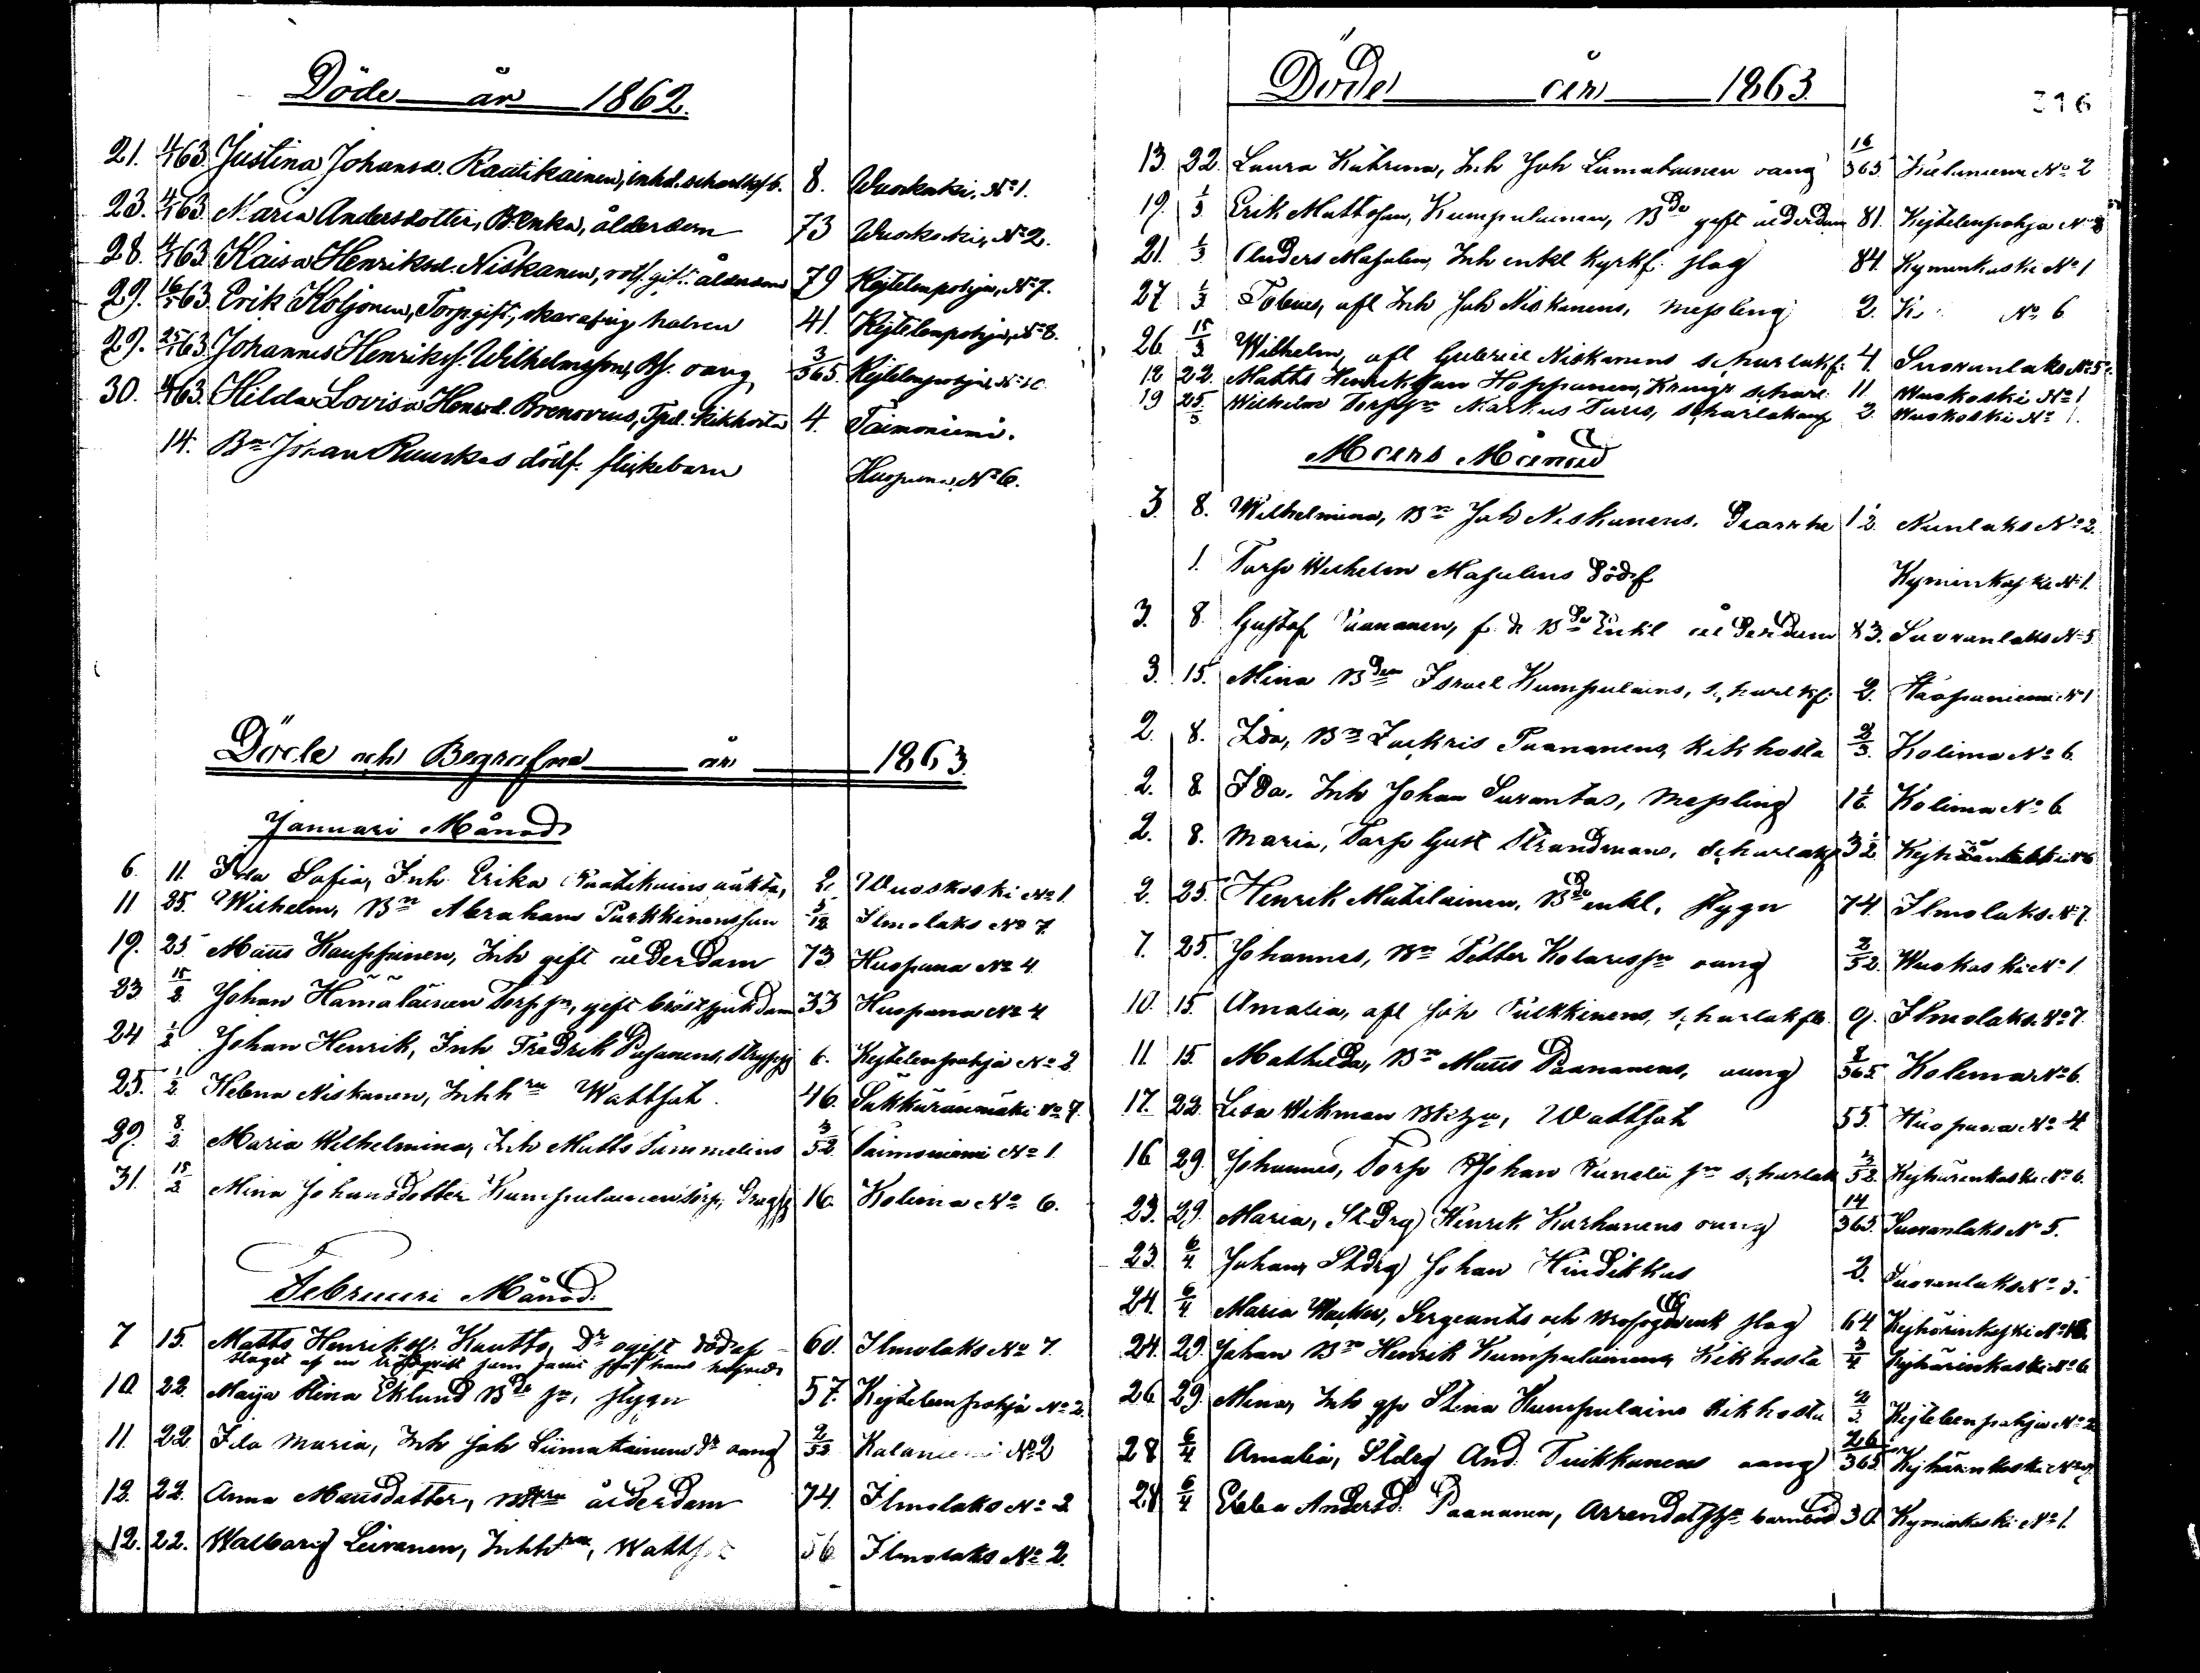 Döde år 1862.
21. 4/1 63. Justina Johansd. Raatikainen, inhd. scharlksfb. 8. Wuoskoski, No 1.
23. 4/1 63 Maria Andersdotter, B.enka, ålderdom 73 Wuoskoski, No 2.
28. 4/1 63 Kaisa Henriksd. Niskanen, gift ålderdom 79 Kejtelenpohja, No 7.
29. 63. Erik Koljonen, Torp. gift, halsen 41. Kejtelenpohja, No 8.
29. 25/1 63 Johannes Henrikss. Wilhelmsson, Bs. oang 3/365. Kejtelenpohja, No 10.
30. 4/1 63. Hilda Lovisa Brenorius, kikhosta 4. Taimoniemi.
14. Bn Johan Ruuskas dödf. flickebarn Huopana, No 6.
Döde och Begrafne år 1863.
Januari Månad
6. 11. Ida Sofia, Inh. Erika Raatikains oäkta, 2. Wuoskoski No 1.
11 25. Wilhelm, Bn Abrahams Purkkinens son 5/12 Ilmolaks No 7.
19. 25 Måns Kauppinen, Inh gift ålderdom 73 Huopana No 4.
23 15/2 Johan Hämäläinen Torp, gift bröstsjukdom 33 Huopana No 4
24 1/2 Johan Henrik, Inh Fredrik Pasanens, 6. Kejtelenpohja No 2
25. 1/2 Helena Niskanen, Inhh Wattsot. 46. Sukkuranmäki No 7.
29. 8/2 Maria Wilhelmina, Inh Matts Tummelins 3/52 Taimoniemi No 1.
31. 15/2 Mina Johansdotter Kumpulainen Torp, 16. Kolima No 6.
Februari Månad.
7 15. Matts Henrikss. Kautto, Dr ogift död af 60. Ilmolaks No 7.
slaget af en
10. 22. Maija Stina Eklund Bde, stygn 57. Kejtelenpohja No 2.
11. 22 Ida Maria, Inh Joh Liimatainens dr oang 2/52 No 2
12. 22. Anna Månsdotter, ålderdom 74. Ilmolaks No 2
12. 22. Walborg Leivonen, Inhh, Wattsot 56 Ilmolaks No 2.
Döde år 1863.
216
13. 22. Laura Kathrina, Inh Joh Liimatainen oang 16/365. Kalaniemi No 2
19. 1/3 Erik Mattsson, Kumpulainen, Bde gift ålderdom 81. Kejtelenpohja No 8
21. 1/3 Anders Masalin, Inh enkl kyrkf. slag 84. Kyminkoski No 1
27 1/3 Tobias, afl Inh Joh Niskanens, messling 2. K No 6
26. 15/3 Wilhelm, afl Gabriel Niskanens scharlakf. 4. Suovanlaks No 5.
12 22. Matts Henriksson Hoppanen, schar. 11 Wuoskoski No 1
19 25/3 Wilhelm Markus Turus, scharlakansf 2. Wuoskoski No 1.
Mars Månad
3. 8. Wilhelmina, Bn Joh Niskanens, 1 1/2 Nunlaks No 2.
1. Torp Wilhelm Masalins Dödf Kyminkoski No 1.
3. 8 Gustaf Paananen, f. d. Bde Enkl ålderdom 83. Suovanlaks No 5
3. 15. Mina Israel Kumpulains, scharlkf. 2. Haapaniemi No 1
2. 8. Ida, Bn Zackris Paananens, kikhosta Kolima No 6.
2. 8 Ida, Inh Johan Savantos, messling 1 1/6 Kolima No 6.
2. 8. Maria, Torp Gust Strandmans, scharlakf 3 1/2
2. 25. Henrik Matilainen, Bde enkl, stygn 74. Ilmolaks No 7
7. 25. Johannes, Bn Petter Kolaris sn oang 2/52. Wuoskoski No 1.
10. 15. Amalia, afl Joh Pulkkinens, scharlakfb. 9. Ilmolaks No 7.
11. 15. Mathilda, Bn Måns Paananens, oang 8/365. Kolima No 6.
17. 22. Lisa Wikman, Wattsot 55. Huopana No 4.
16 29. Johannes, Torp Johan sn scharlak 3/52. Kejhärinkoski No 6.
23. 29. Maria, St.Drg Henrik Korhonens oang 14/365. Suovanlaks No 5.
23. 6/4 Johan, Stdrg Johan Hindikkas 2. Suovanlaks No 5.
24. 6/4 Maria Wacker, Sergeants och enk slag 64 Kejhärinkoski
24. 29. Johan Bn Henrik Kumpulainens, Kikhosta 3/4 Kejhärinkoski No 6
26 29. Mina, Inh gp Stina Kumpulains kikhosta 2/3 Kejtelenpohja No 2
28 6/4 Amalia, Stdrg And. Tuikkanens oang 26/365. Kejhärinkoski
28 6/4 Ebba Andersd. Paananen, barnbörd 30. Kyminkoski No 1.